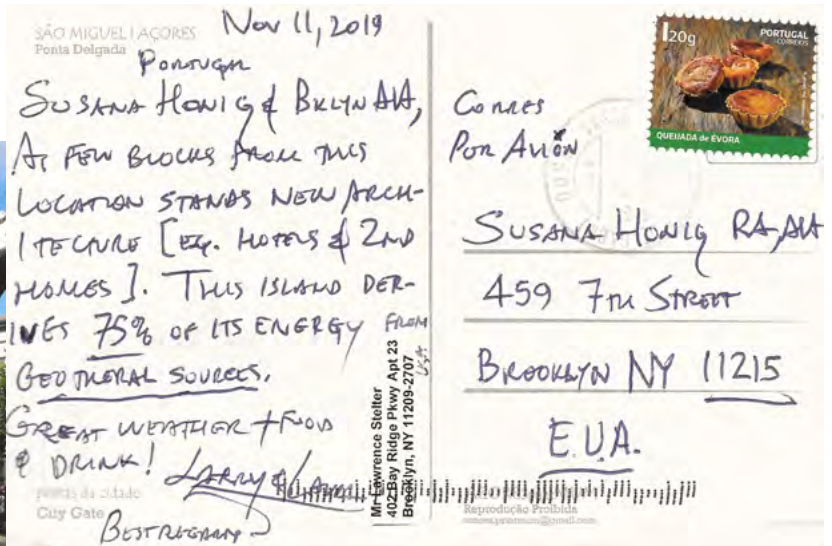 SÃO MIGUEL | AÇORES
Ponta Delgada
Nov 11, 2019
Portugal
SUSANA HONIG & BKLYN AIA,
A FEW BLOCKS FROM THIS
LOCATION STANDS NEW ARCH-
ITECTURE [EG. HOTELS & 2ND
HOMES]. THIS ISLAND DER-
IVES 75% OF ITS ENERGY FROM
GEOTHERAL SOURCES.
GREAT WEATHER + FOOD
& DRINK! LARRY &
Portas da cidade
City Gate
BEST REGARDS
FROM USA
Mr Lawrence Stelter
402 Bay Ridge Pkwy Apt 23
Brooklyn, NY 11209-2707
I20g
PORTUGAL
CORREIOS
QUEIJADA de ÉVORA
CORRES
POR AVIÓN
SUSANA HONIG RA, AIA
459 7TH STREET
BROOKLYN NY 11215
E.U.A.
Reprodução Proibida